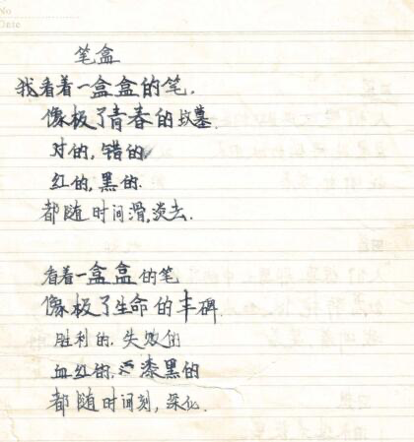 No
Date
笔盒
我看着一盒盒的笔.
像极了青春的坟墓.
对的,错的,
红的,黑的.
都随时间滑,淡去.
看着一盒盒的笔
像极了生命的丰碑.
胜利的.失败的
血红的.漆黑的
都随时间刻,深化.